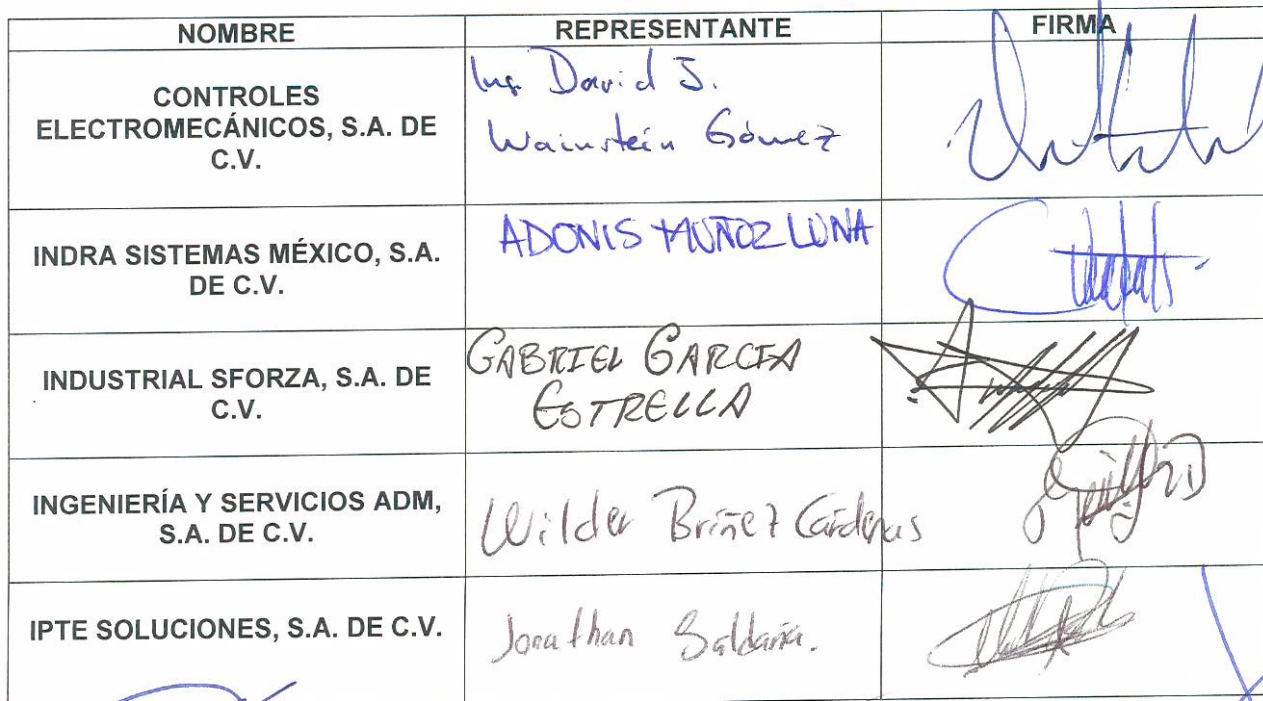 NOMBRE REPRESENTANTE FIRMA
CONTROLES
ELECTROMECÁNICOS, S.A. DE
C.V.
Ing. David J.
Wainstein Gómez
INDRA SISTEMAS MÉXICO, S.A.
DE C.V.
ADONIS MUÑOZ LUNA
INDUSTRIAL SFORZA, S.A. DE
C.V.
GABRIEL GARCIA
ESTRELLA
INGENIERÍA Y SERVICIOS ADM,
S.A. DE C.V.
Wilder Briñez Cárdenas
IPTE SOLUCIONES, S.A. DE C.V.
Jonathan Saldaña.